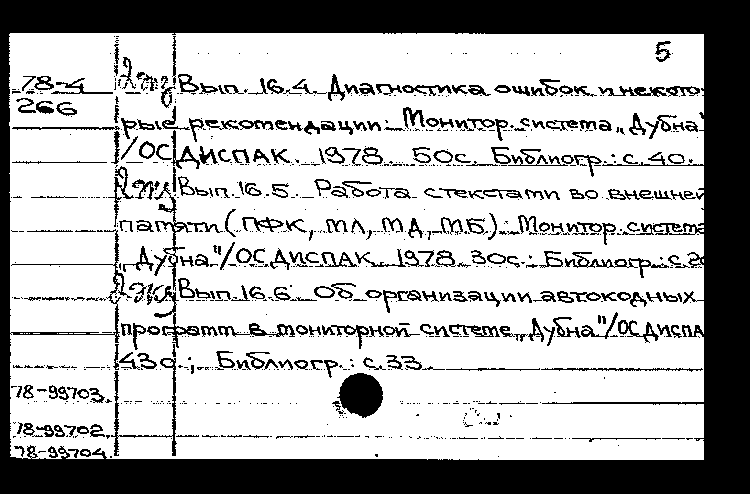 5
78-4 2экз Вып. 16.4. Диагностика ошибок и некото-
266
рые рекомендации: Монитор. система „Дубна"
/ОС ДИСПАК. 1978. 50с. Библиогр.: с. 40.
2экз Вып. 16.5. Работа с текстами во внешней
памяти (ПФК, МЛ, МД, МБ): Монитор. система
„Дубна"/ОС ДИСПАК. 1978. 30с.: Библиогр.: с.
2экз Вып. 16.6. Об организации автокодных
программ в мониторной системе „Дубна"/ОС ДИСПА
43с.; Библиогр.: с. 33.
78-99703.
78-99702.
78-99704